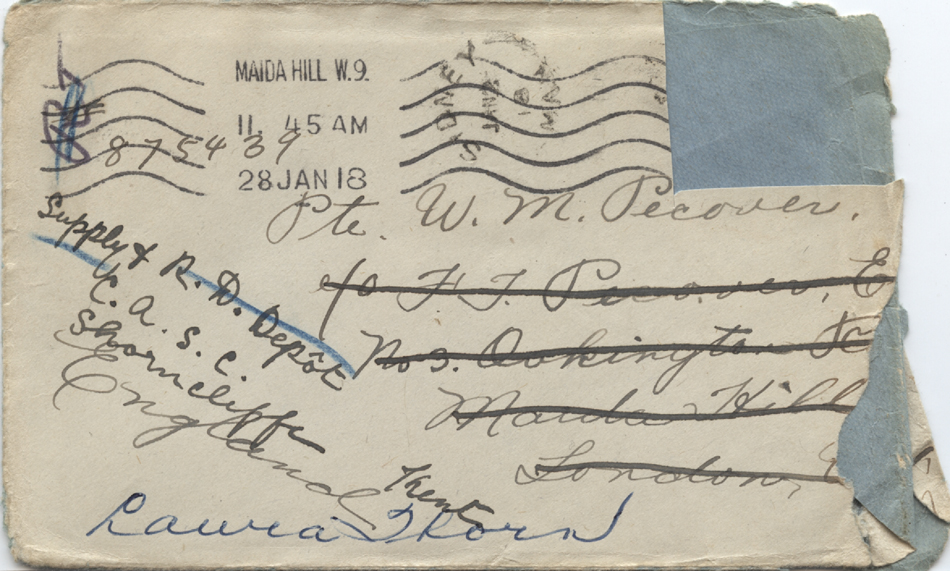 MAIDA HILL W.9.
11. 45 AM
28 JAN 18
SYDNEY
8754 39
Pte. W. M. Pecover.
c/o F. T. Pecover, E
No 3. Oakington
Maida Hill
London, E
Supply & R. D. Depôt
C. A. S. C.
Shorncliffe
England
Kent
Laura Thorn